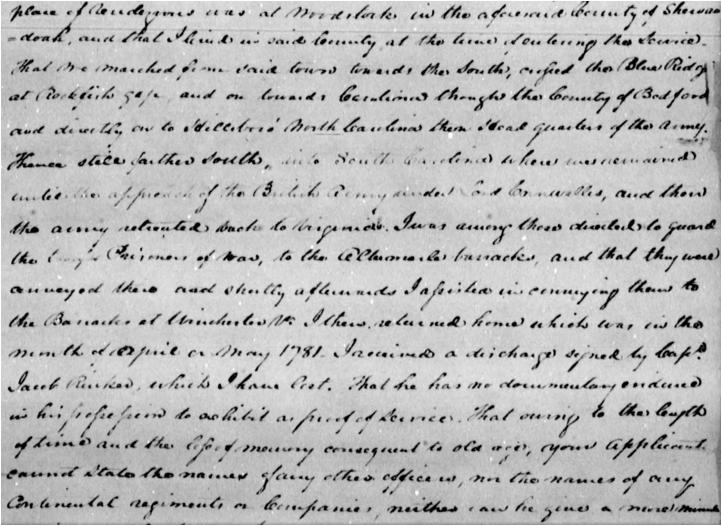 place of Rendezvous was at Woodstock in the aforesaid County of Shenan
=doah, and that I lived in said County at the time of entering the Service.
That we marched from said town towards the South, crossed the Blue Ridge
at Rockfish gap, and on towards Carolina through the County of Bedford
and directly on to Hillsboro' North Carolina then Head quarters of the Army.
Thence still farther South, into South Carolina where we remained
until the approach of the British Army under Lord Cornwallis, and then
the army retreated back to Virginia. I was among those directed to guard
the Prisoners of War, to the Albemarle barracks, and that they were
conveyed there and shortly afterwards I assisted in conveying them to
the Barracks at Winchester Va. I then returned home which was in the
month of April or May 1781. I received a discharge signed by Capt.
Jacob Rinker, which I have lost. That he has no documentary evidence
in his possession to exhibit as proof of Service. That owing to the length
of time and the loss of memory consequent to old age, your applicant
cannot State the names of any other officers, nor the names of any
Continental regiments or Companies, neither can he give a more minute